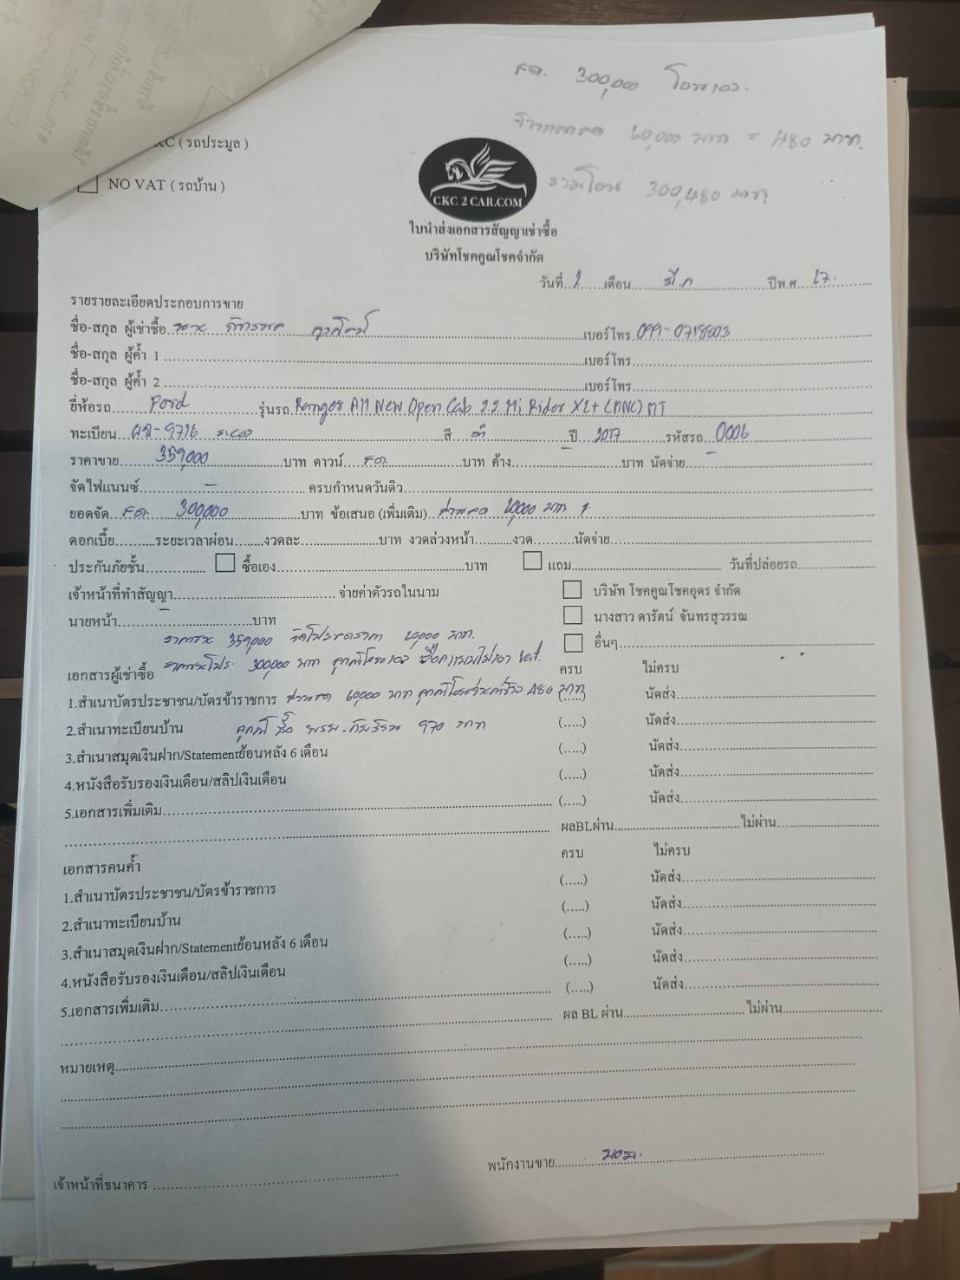 สด. 300,000 โอนเอง.
60,000 บาท = 480 บาท.
รวมโอน 300,480 บาท
KC ( รถประมูล )
NO VAT ( รถบ้าน )
CKC 2 CAR.COM
ใบนำส่งเอกสารสัญญาเช่าซื้อ
บริษัทโชคคูณโชคจำกัด
วันที่ 2 เดือน มี.ค ปีพ.ศ. 67.
รายรายละเอียดประกอบการขาย
ชื่อ-สกุล ผู้เช่าซื้อ เบอร์โทร 099-0718603
ชื่อ-สกุล ผู้ค้ำ 1 เบอร์โทร
ชื่อ-สกุล ผู้ค้ำ 2 เบอร์โทร
ยี่ห้อรถ Ford รุ่นรถ Ranger All New Open Cab 2.2 Hi Rider XL+ (MNC) MT
ทะเบียน ผล-9716 ระยอง สี ดำ ปี 2017 รหัสรถ 0006
ราคาขาย 359,000 บาท ดาวน์ สด. บาท ค้าง - บาท นัดจ่าย -
จัดไฟแนนซ์ - ครบกำหนดวันดิว
ยอดจัด สด. 300,000 บาท ข้อเสนอ (เพิ่มเติม) ส่วนลด 60,000 บาท
ดอกเบี้ย ระยะเวลาผ่อน งวดละ บาท งวดล่วงหน้า งวด นัดจ่าย
ประกันภัยชั้น ซื้อเอง บาท แถม วันที่ปล่อยรถ
เจ้าหน้าที่ทำสัญญา จ่ายค่าตัวรถในนาม บริษัท โชคคูณโชคอุดร จำกัด
นายหน้า - บาท นางสาว ดารัตน์ จันทรสุวรรณ
ราคาขาย 359,000 จัดโปรลดราคา 60,000 บาท. อื่นๆ
เอกสารผู้เช่าซื้อ ราคาขายโปร. 300,000 บาท ลูกค้าโอนเอง ซื้อแบบไม่เอา Vat. ครบ ไม่ครบ
1.สำเนาบัตรประชาชน/บัตรข้าราชการ ส่วนลด 60,000 บาท 480 บาท (.....) นัดส่ง
2.สำเนาทะเบียนบ้าน ลูกค้าซื้อ พรบ. 970 บาท (.....) นัดส่ง
3.สำเนาสมุดเงินฝาก/Statementย้อนหลัง 6 เดือน (.....) นัดส่ง
4.หนังสือรับรองเงินเดือน/สลิปเงินเดือน (.....) นัดส่ง
5.เอกสารเพิ่มเติม (.....) นัดส่ง
ผลBLผ่าน ไม่ผ่าน
เอกสารคนค้ำ ครบ ไม่ครบ
1.สำเนาบัตรประชาชน/บัตรข้าราชการ (.....) นัดส่ง
2.สำเนาทะเบียนบ้าน (.....) นัดส่ง
3.สำเนาสมุดเงินฝาก/Statementย้อนหลัง 6 เดือน (.....) นัดส่ง
4.หนังสือรับรองเงินเดือน/สลิปเงินเดือน (.....) นัดส่ง
5.เอกสารเพิ่มเติม (.....) นัดส่ง
ผล BL ผ่าน ไม่ผ่าน
หมายเหตุ
พนักงานขาย
เจ้าหน้าที่ธนาคาร